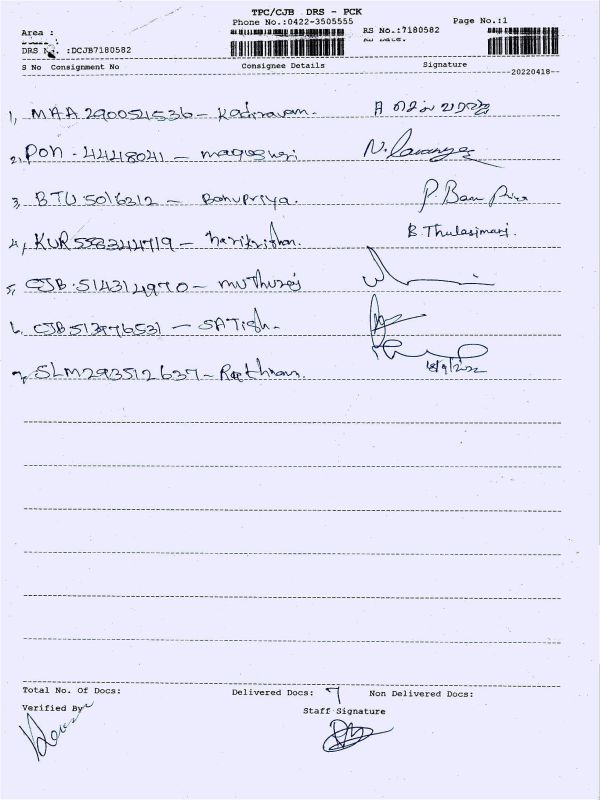 TPC/CJB DRS - PCK
Phone No.:0422-3505555
Page No.:1
Area :
RS No.:7180582
DRS :DCJB7180582
S No Consignment No Consignee Details Signature
20220418
1, MAA 290054536 - Kadiravan.
2, PON - 4448041 -
N. Lavanya
3, BTU 5016312 - Banupriya.
P. Banu Priya
4, - harikrishnan.
B Thulasimani.
5, CJB . 514314970 - muthuraj
6, CJB 513776531 - SATISH.
7, SLM 293512637 -
Total No. Of Docs: Delivered Docs: 7 Non Delivered Docs:
Verified By
Staff Signature